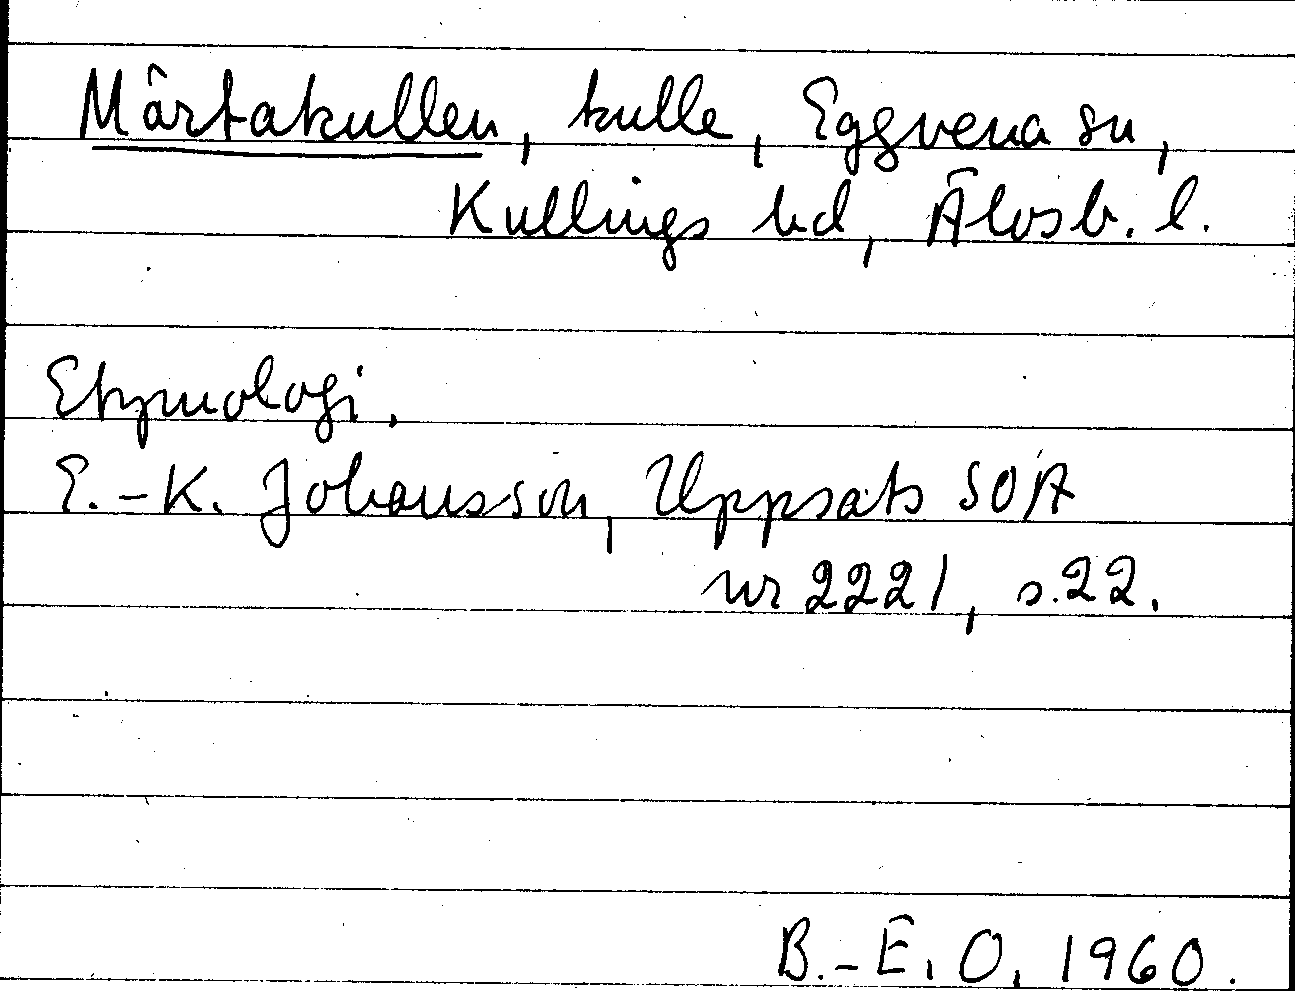 Märtakullen, kulle, Eggvena sn,
Kullings hd, Älvsb. l.
Etymologi.
E.-K. Johansson, Uppsats SOA
nr 2221, s.22.
B.-E. O. 1960.